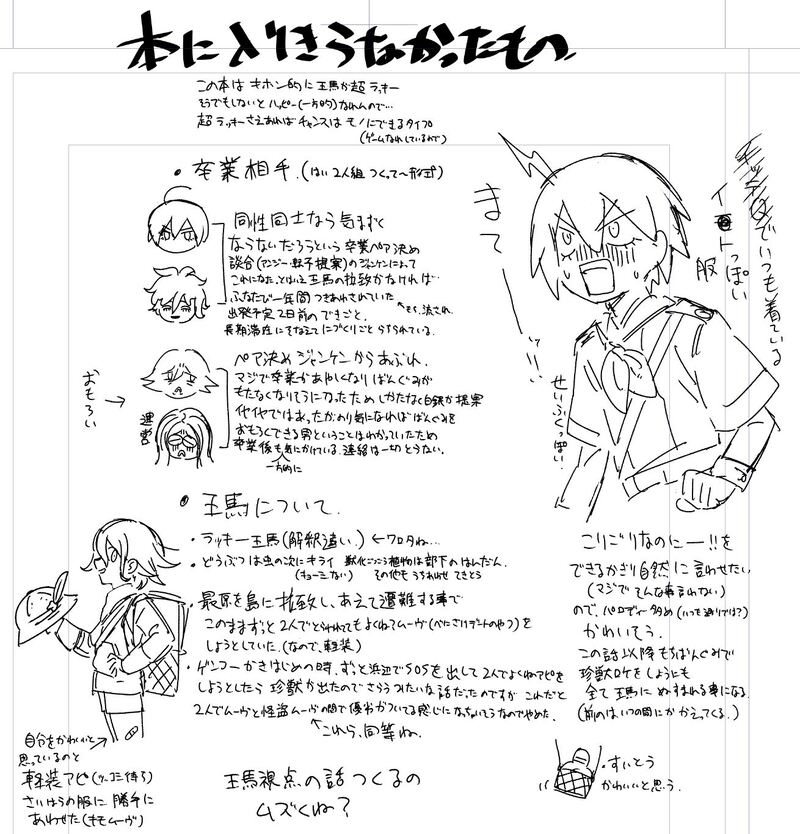 本に入りきらなかったもの
この本は キホン的に 王馬が超ラッキー
そうでもしないと ハッピー(一方的)なれんので…
超ラッキーさえあれば チャンスは モノにできるタイプ
(ゲームなれしているので)
・卒業相手.(はい2人組つくって〜形式)
同性同士なら気まずく
ならないだろうという 卒業ペア決め
談合(アンジー・転子提案)のジャンケンによって
これになった。とはいえ王馬の拉致がなければ…
ふなたびで一年間つきあわされていた
出発予定2日前のできごと。
←もち、流され
長期滞在にそなえて につくりごと らちられている。
おもろい→
運営
ペア決めジャンケンからあぶれ、
マジで卒業があやしくなり ばんぐみが
もたなくなりそうになったため しかたなく白銀が提案
イヤイヤではあったが のり気になれば ばんぐみを
おもろくできる男ということはわかっていたため
卒業後も気にかけている。連絡は一切とらない。
一方的に
・王馬について.
・ラッキー王馬(解釈違い.) ←ワロタね…
・どうぶつは虫の次にキライ
(キョーミない)
その他も うちわわせ てきとう
・最原を島に拉致し、あえて遭難する事で
このままずっと2人でとらわれてもよくね?ムーヴ(べにさけデートのやつ)を
しようとしていた(なので、軽装)
・ゲンコーかきはじめの時、ずっと浜辺でSOSを出して2人でよくね?アピを
しようとしたら 珍獣が出たので さらうみたいな話だったのですが これだと
2人でムーヴと怪盗ムーヴの間で優劣がついてる感じになっちゃいそうなのでやめた.
↑これら、同等ね.
王馬視点の話つくるの
ムズくね?
自分をかわいいと
思っているのと
軽装アピ(ツッコミ待ち)
さいはらの服に勝手に
あわせた(キモムーヴ)
まて〜!!
いつも着ている
っぽい
服
せいふくっぽい
こりごりなのにー!!を
できるかぎり自然に言わせたい
(マジでそんな事言わない)
ので、パロディ多め(いつも通りでは?)
かわいそう.
この話以降もちばんぐみで
珍獣ロケをしようにも
全て王馬にぬすまれる事になる
(前のはいつの間にかかえってくる.)
・すいとう
かわいいと思う.